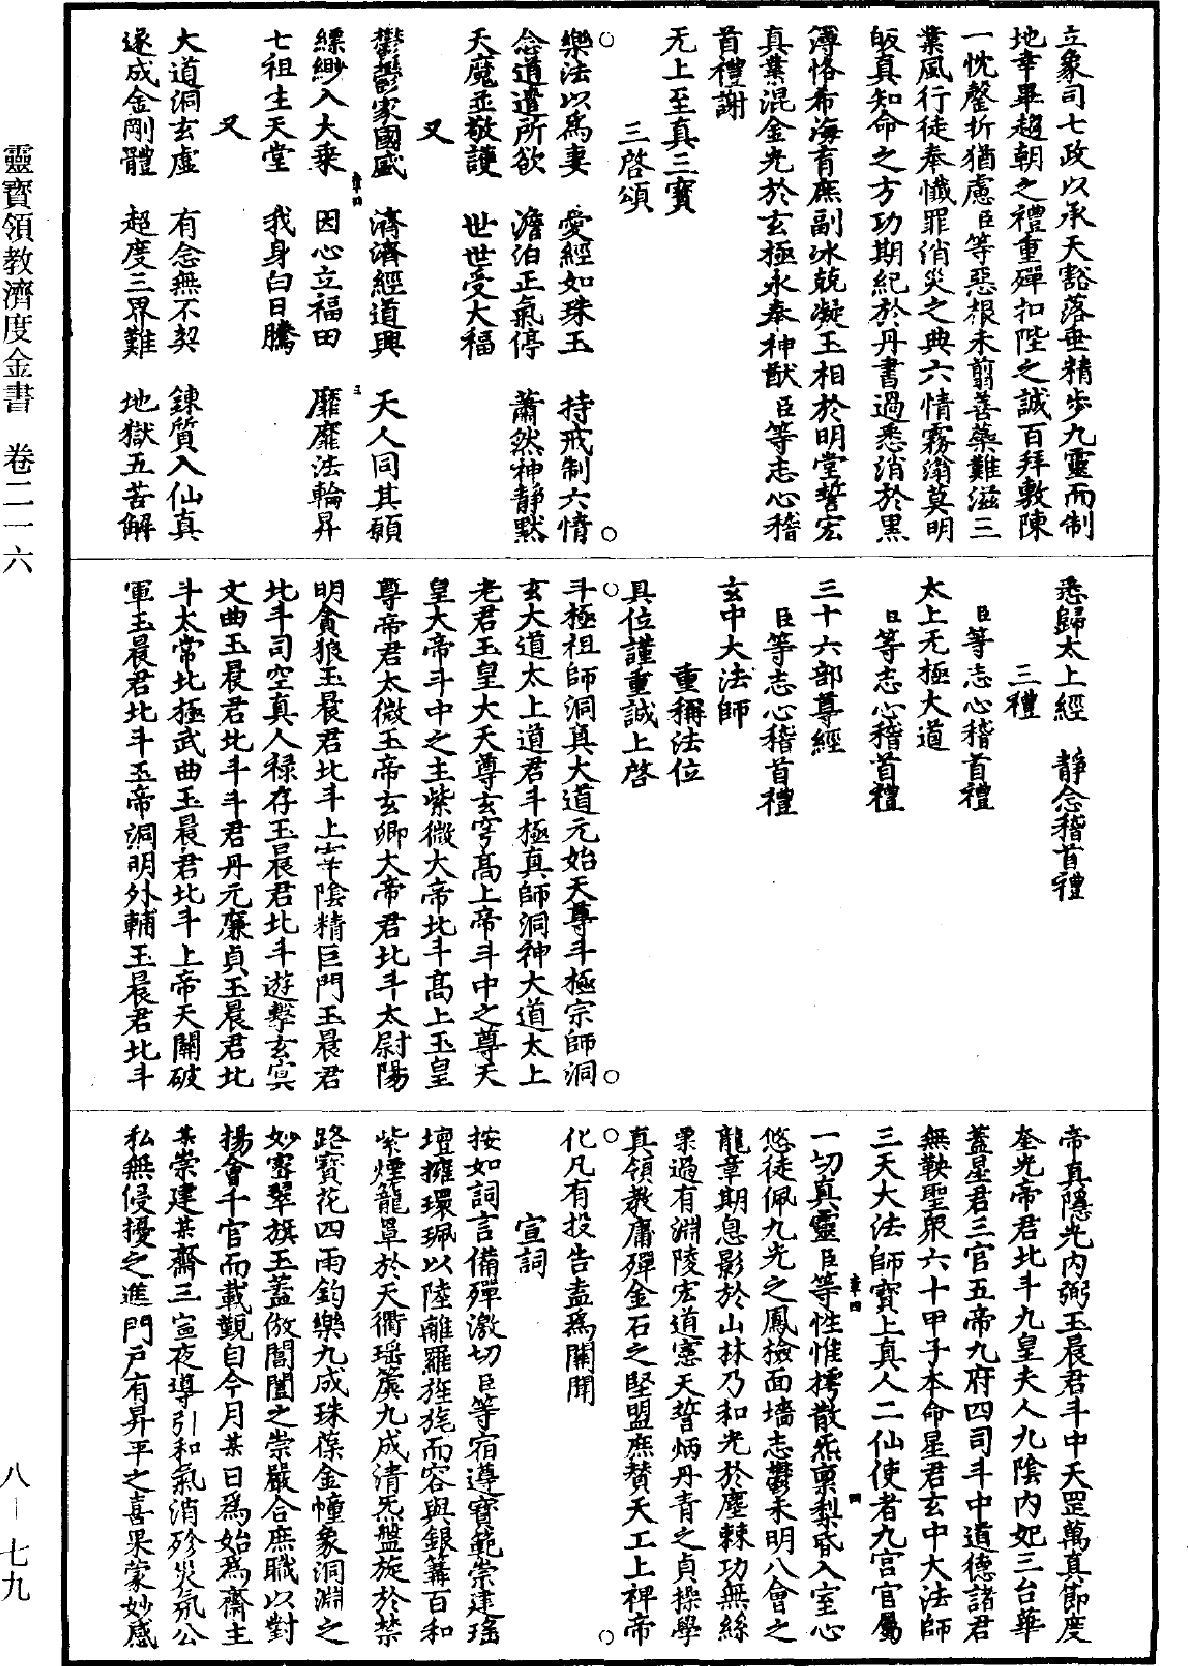 立象司七政以承天豁落垂精步九靈而制
地幸畢趨朝之禮重殫扣陛之誠百拜敷陳
一忱罄折猶慮臣等惡根未翦善蘂難滋三
業風行徒奉懺罪消災之典六情霧滃莫明
皈真知命之方功期紀於丹書過悉消於黑
簿恪希海有庶副冰兢凝玉相於明堂誓宏
真業混金光於玄極永奉神猷臣等志心稽
首禮謝
无上至真三寶
三啓頌
樂法以爲妻 愛經如珠玉 持戒制六情
念道遣所欲 澹泊正氣停 蕭然神靜默
天魔並敬護 世世受大福
又
鬱鬱家國盛 濟濟經道興 天人同其願
縹緲入大乗 因心立福田 靡靡法輪昇
七祖生天堂 我身白日騰
又
大道洞玄虛 有念無不契 鍊質入仙真
遂成金剛體 超度三界難 地獄五苦解
悉歸太上經 靜念稽首禮
三禮
臣等志心稽首禮
太上无極大道
臣等志心稽首禮
三十六部尊經
臣等志心稽首禮
玄中大法師
重稱法位
具位謹重誠上啓
斗極祖師洞真大道元始天尊斗極宗師洞
玄大道太上道君斗極真師洞神大道太上
老君玉皇大天尊玄穹高上帝斗中之尊天
皇大帝斗中之主紫微大帝北斗高上玉皇
尊帝君太微玉帝玄卿大帝君北斗太尉陽
明貪狼玉晨君北斗上宰陰精巨門玉晨君
北斗司空真人祿存玉晨君北斗遊擊玄冥
文曲玉晨君北斗斗君丹元廉貞玉晨君北
斗太常北極武曲玉晨君北斗上帝天關破
軍玉晨君北斗玉帝洞明外輔玉晨君北斗
帝真隱光内弼玉晨君斗中天罡萬真節度
奎光帝君北斗九皇夫人九陰内妃三台華
蓋星君三官五帝九府四司斗中道德諸君
無鞅聖衆六十甲子本命星君玄中大法師
三天大法師寶上真人二仙使者九宮官屬
一切真靈臣等性惟樗散炁禀梨昏入室心
悠徒佩九光之鳳撿面墻志鬱未明八會之
龍章期息影於山林乃和光於塵棘功無絲
栗過有淵陵宏道憲天誓炳丹青之貞操學
真領教庸殫金石之堅盟庶賛天工上裨帝
化凡有投告盍爲關聞
宣詞
按如詞言備殫激切臣等宿遵寶範崇建瑶
壇擁環珮以陸離羅旌旄而容與銀篝百和
紫煙籠罩於天衢瑶簴九成清炁盤旋於禁
路寶花四雨鈞樂九成珠葆金幢象洞淵之
妙寥翠旗玉蓋倣閶闔之崇嚴合庶職以對
揚會千官而載觀自今月某日爲始爲齋主
某崇建某齋三宣夜導引和氣消殄災氛公
私無侵擾之進門戶有昇平之喜果蒙妙感
章四
三
章四
四
靈寶領教濟度金書 卷二一六
八—七九